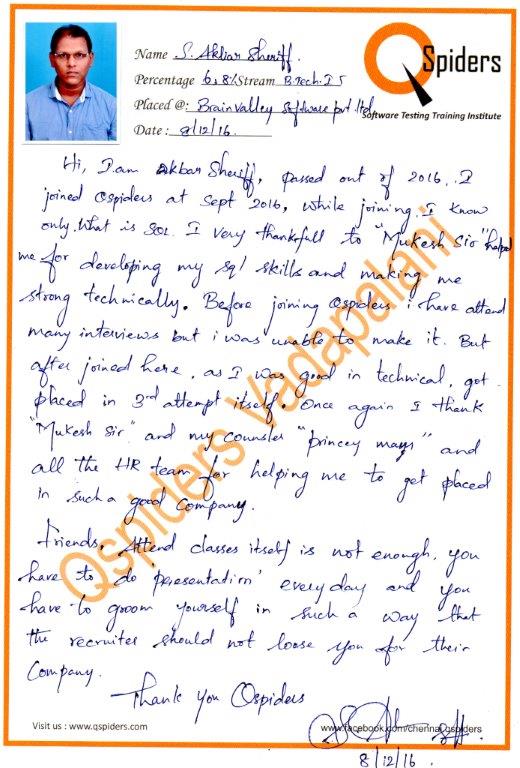 Name S. Akbar Sheriff.
Percentage 6.8% Stream B.Tech. IT
Placed @: Brainvalley Software pvt ltd,
Date : 8/12/16.
QSpiders
Software Testing Training Institute
Hi, I am Akbar Sheriff, passed out of 2016. I
joined Qspiders at Sept 2016, while joining, I know
only. What is SQL. I very thankfull to "Mukesh Sir" helped
me for developing my sql skills and making me
strong technically. Before joining Qspiders i have attend
many interviews but i was unable to make it. But
after joined here, as I was good in technical, got
placed in 3rd attempt itself. Once again I thank
"Mukesh Sir" and my counsler "princey mam" and
all the HR team for helping me to get placed
in such a good company.
Friends, Attend classes itself is not enough, you
have to do presentation' everyday and you
have to groom yourself in such a way that
the recruiter should not loose you for their
Company.
Thank you Qspiders
Qspiders Vadapalani
Visit us : www.qspiders.com
www.facebook.com/chennai.qspiders
8/12/16.